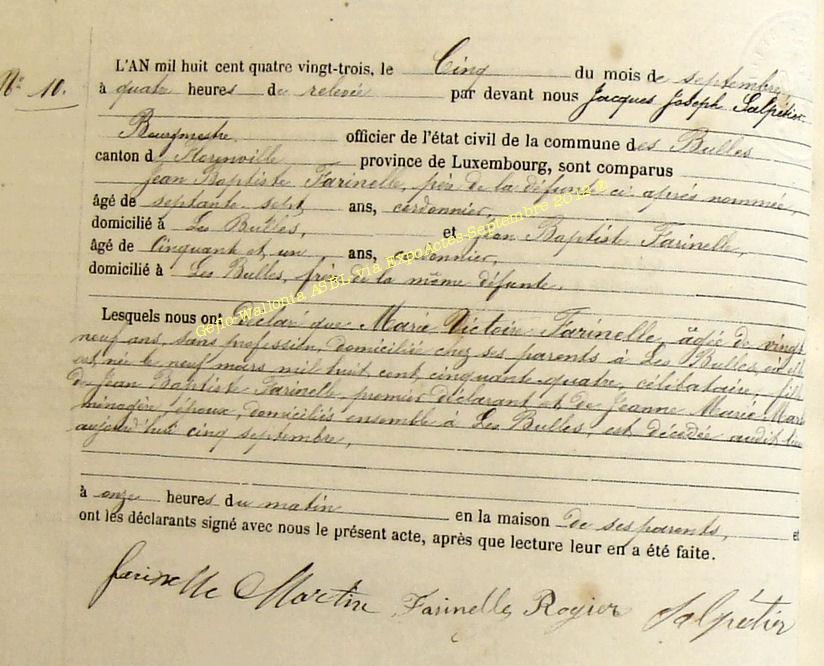 L'AN mil huit cent quatre vingt-trois, le Cinq du mois de septembre
Nº 10.
à quatre heures de relevée par devant nous Jacques Joseph Salpétier
Bourgmestre officier de l'état civil de la commune des Bulles
canton de Florenville province de Luxembourg, sont comparus
Jean Baptiste Farinelle, père de la défunte ci après nommée,
âgé de septante sept ans, cordonnier,
domicilié à Les Bulles, et Jean Baptiste Farinelle,
âgé de Cinquant et un ans, cordonnier,
domicilié à Les Bulles, frère de la même défunte.
Lesquels nous ont Déclaré que Marie Victoire Farinelle, âgée de vingt
neuf ans, sans profession, domiciliée chez ses parents à Les Bulles, où elle
est née le neuf mars mil huit cent cinquante quatre, célibataire, fille
de Jean Baptiste Farinelle premier déclarant et de Jeanne Marie
ménagère, époux, domiciliés ensemble à Les Bulles, est décédée audit lieu
aujourd'hui cinq septembre,
à onze heures du matin en la maison de ses parents, et
ont les déclarants signé avec nous le présent acte, après que lecture leur en a été faite.
farinelle Martin Farinelle Rogier Salpétier
Généo-Wallonia ASBL via ExpoActes-Septembre